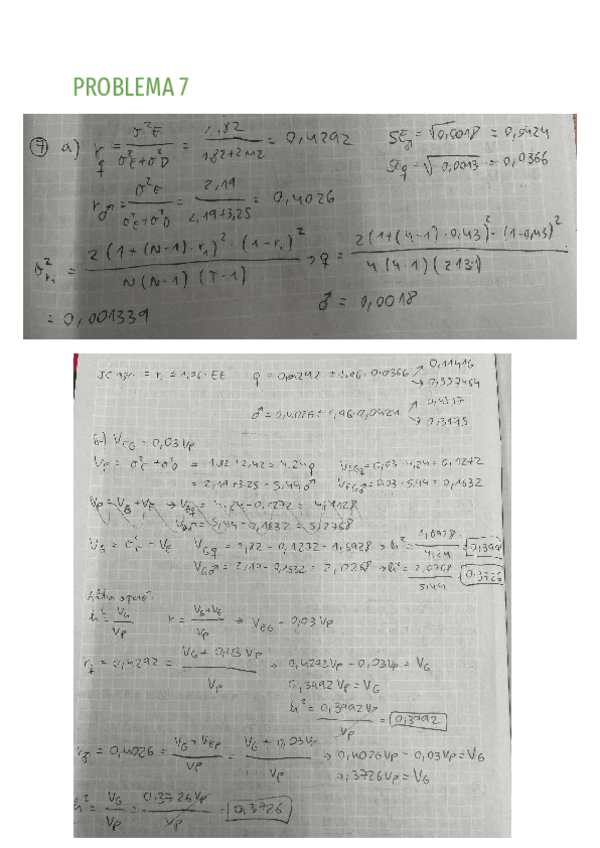 PROBLEMA 7
⑦ a) r♀ = σ²E / (σ²E + σ²D) = 1,82 / (1,82 + 2,42) = 0,4292
SE♂ = √0,0018 = 0,0424
SE♀ = √0,0013 = 0,0366
r♂ = σ²E / (σ²E + σ²D) = 2,19 / (2,19 + 3,25) = 0,4026
σ²r₁ = 2(1 + (N-1)·r₁)²·(1-r₁)² / N(N-1)(T-1) → ♀ = 2(1 + (4-1)·0,43)²·(1-0,43)² / 4(4-1)(213-1)
= 0,001339
♂ = 0,0018
= r₁ ± 1,96·EE ♀ = 0,4292 ± 1,96·0,0366
0,337464
♂ = 0,4026 ± 1,96·0,0424
b) V_EG = 0,03 Vp
Vp = σ²E + σ²D = 1,82 + 2,42 = 4,24 ♀ V_EG♀ = 0,03·4,24 = 0,1272
= 2,19 + 3,25 = 5,44 ♂ V_EG♂ = 0,03·5,44 = 0,1632
Vp = VG + VE → = 4,24 - 0,1272 = 4,1128
= 5,44 - 0,1632 = 5,2768
VG♀ = 1,82 - 0,1272 = → h² =
VG♂ = 2,19 - 0,1632 = → h² = 0,3726
h² = VG / Vp r = (VG + VE) / Vp → V_EG = 0,03 Vp
r♀ = 0,4292 = (VG + 0,03 Vp) / Vp → 0,4292 Vp - 0,03 Vp = VG
0,3992 Vp = VG
h² = 0,3992 Vp / Vp = 0,3992
= 0,4026 = / Vp = (VG + 0,03 Vp) / Vp → 0,4026 Vp - 0,03 Vp = VG
0,3726 Vp = VG
h² = VG / Vp = 0,3726 Vp / Vp = 0,3726